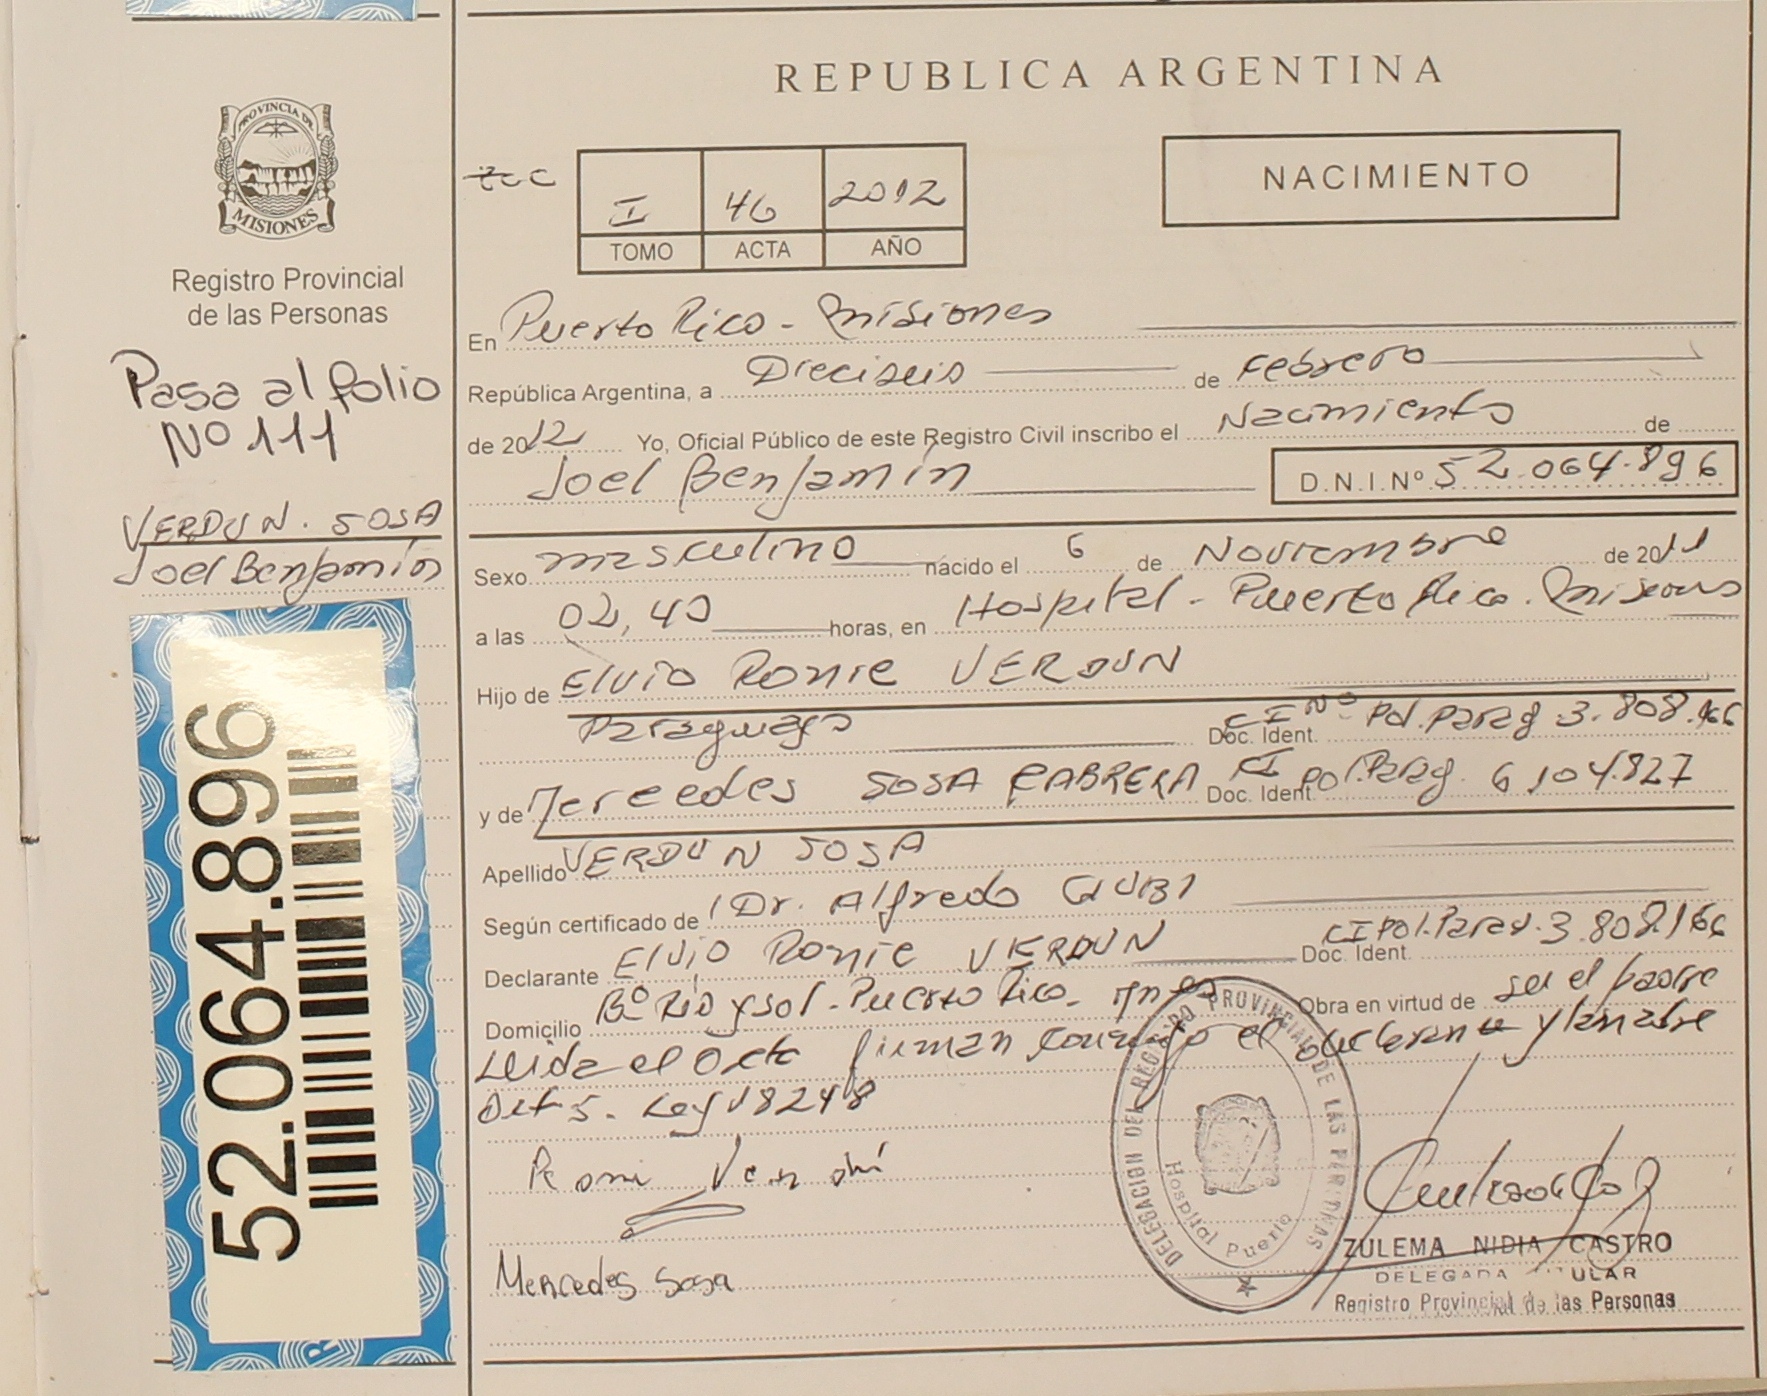 REPUBLICA ARGENTINA
PROVINCIA DE
MISIONES
Registro Provincial
de las Personas
Pasa al folio
Nº 111
VERDUN. SOSA
Joel Benjamín
52.064.896
I 46 2012
TOMO ACTA AÑO
NACIMIENTO
En Puerto Rico - Misiones
República Argentina, a Dieciseis de Febrero
de 2012 Yo, Oficial Público de este Registro Civil inscribo el Nacimiento de
Joel Benjamín D.N.I.Nº 52.064.896
Sexo masculino nácido el 6 de Noviembre de 2011
a las 02,40 horas, en Hospital - Puerto Rico. Misiones
Hijo de Elvio Ronie VERDUN
Paraguayo Doc. Ident. CI Nº Pol. Parag 3.808.166
y de Mercedes SOSA CABRERA Doc. Ident. CI Pol. Parag. 6104.827
Apellido VERDUN SOSA
Según certificado de Dr. Alfredo GUBI
Declarante Elvio Ronie VERDUN Doc. Ident. CI Pol. Parag. 3.808.166
Domicilio Bº Rio y sol - Puerto Rico - Mnes Obra en virtud de ser el padre
Leida el acta firman conmigo el declarante y la madre
Art 5. Ley 18248
Mercedes Sosa
DELEGACION DEL REGISTRO PROVINCIAL DE LAS PERSONAS
Hospital Puerto
ZULEMA NIDIA CASTRO
DELEGADA TITULAR
Registro Provincial de las Personas